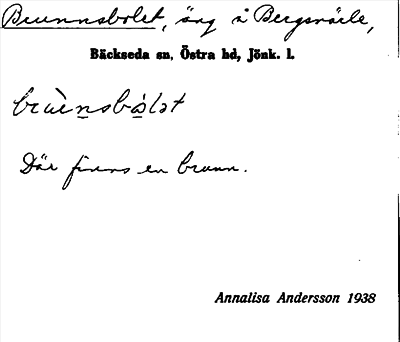 Brunnsbolet, äng å Bergsnärle,
Bäckseda sn, Östra hd, Jönk. l.
Där finns en brunn.
Annalisa Andersson 1938